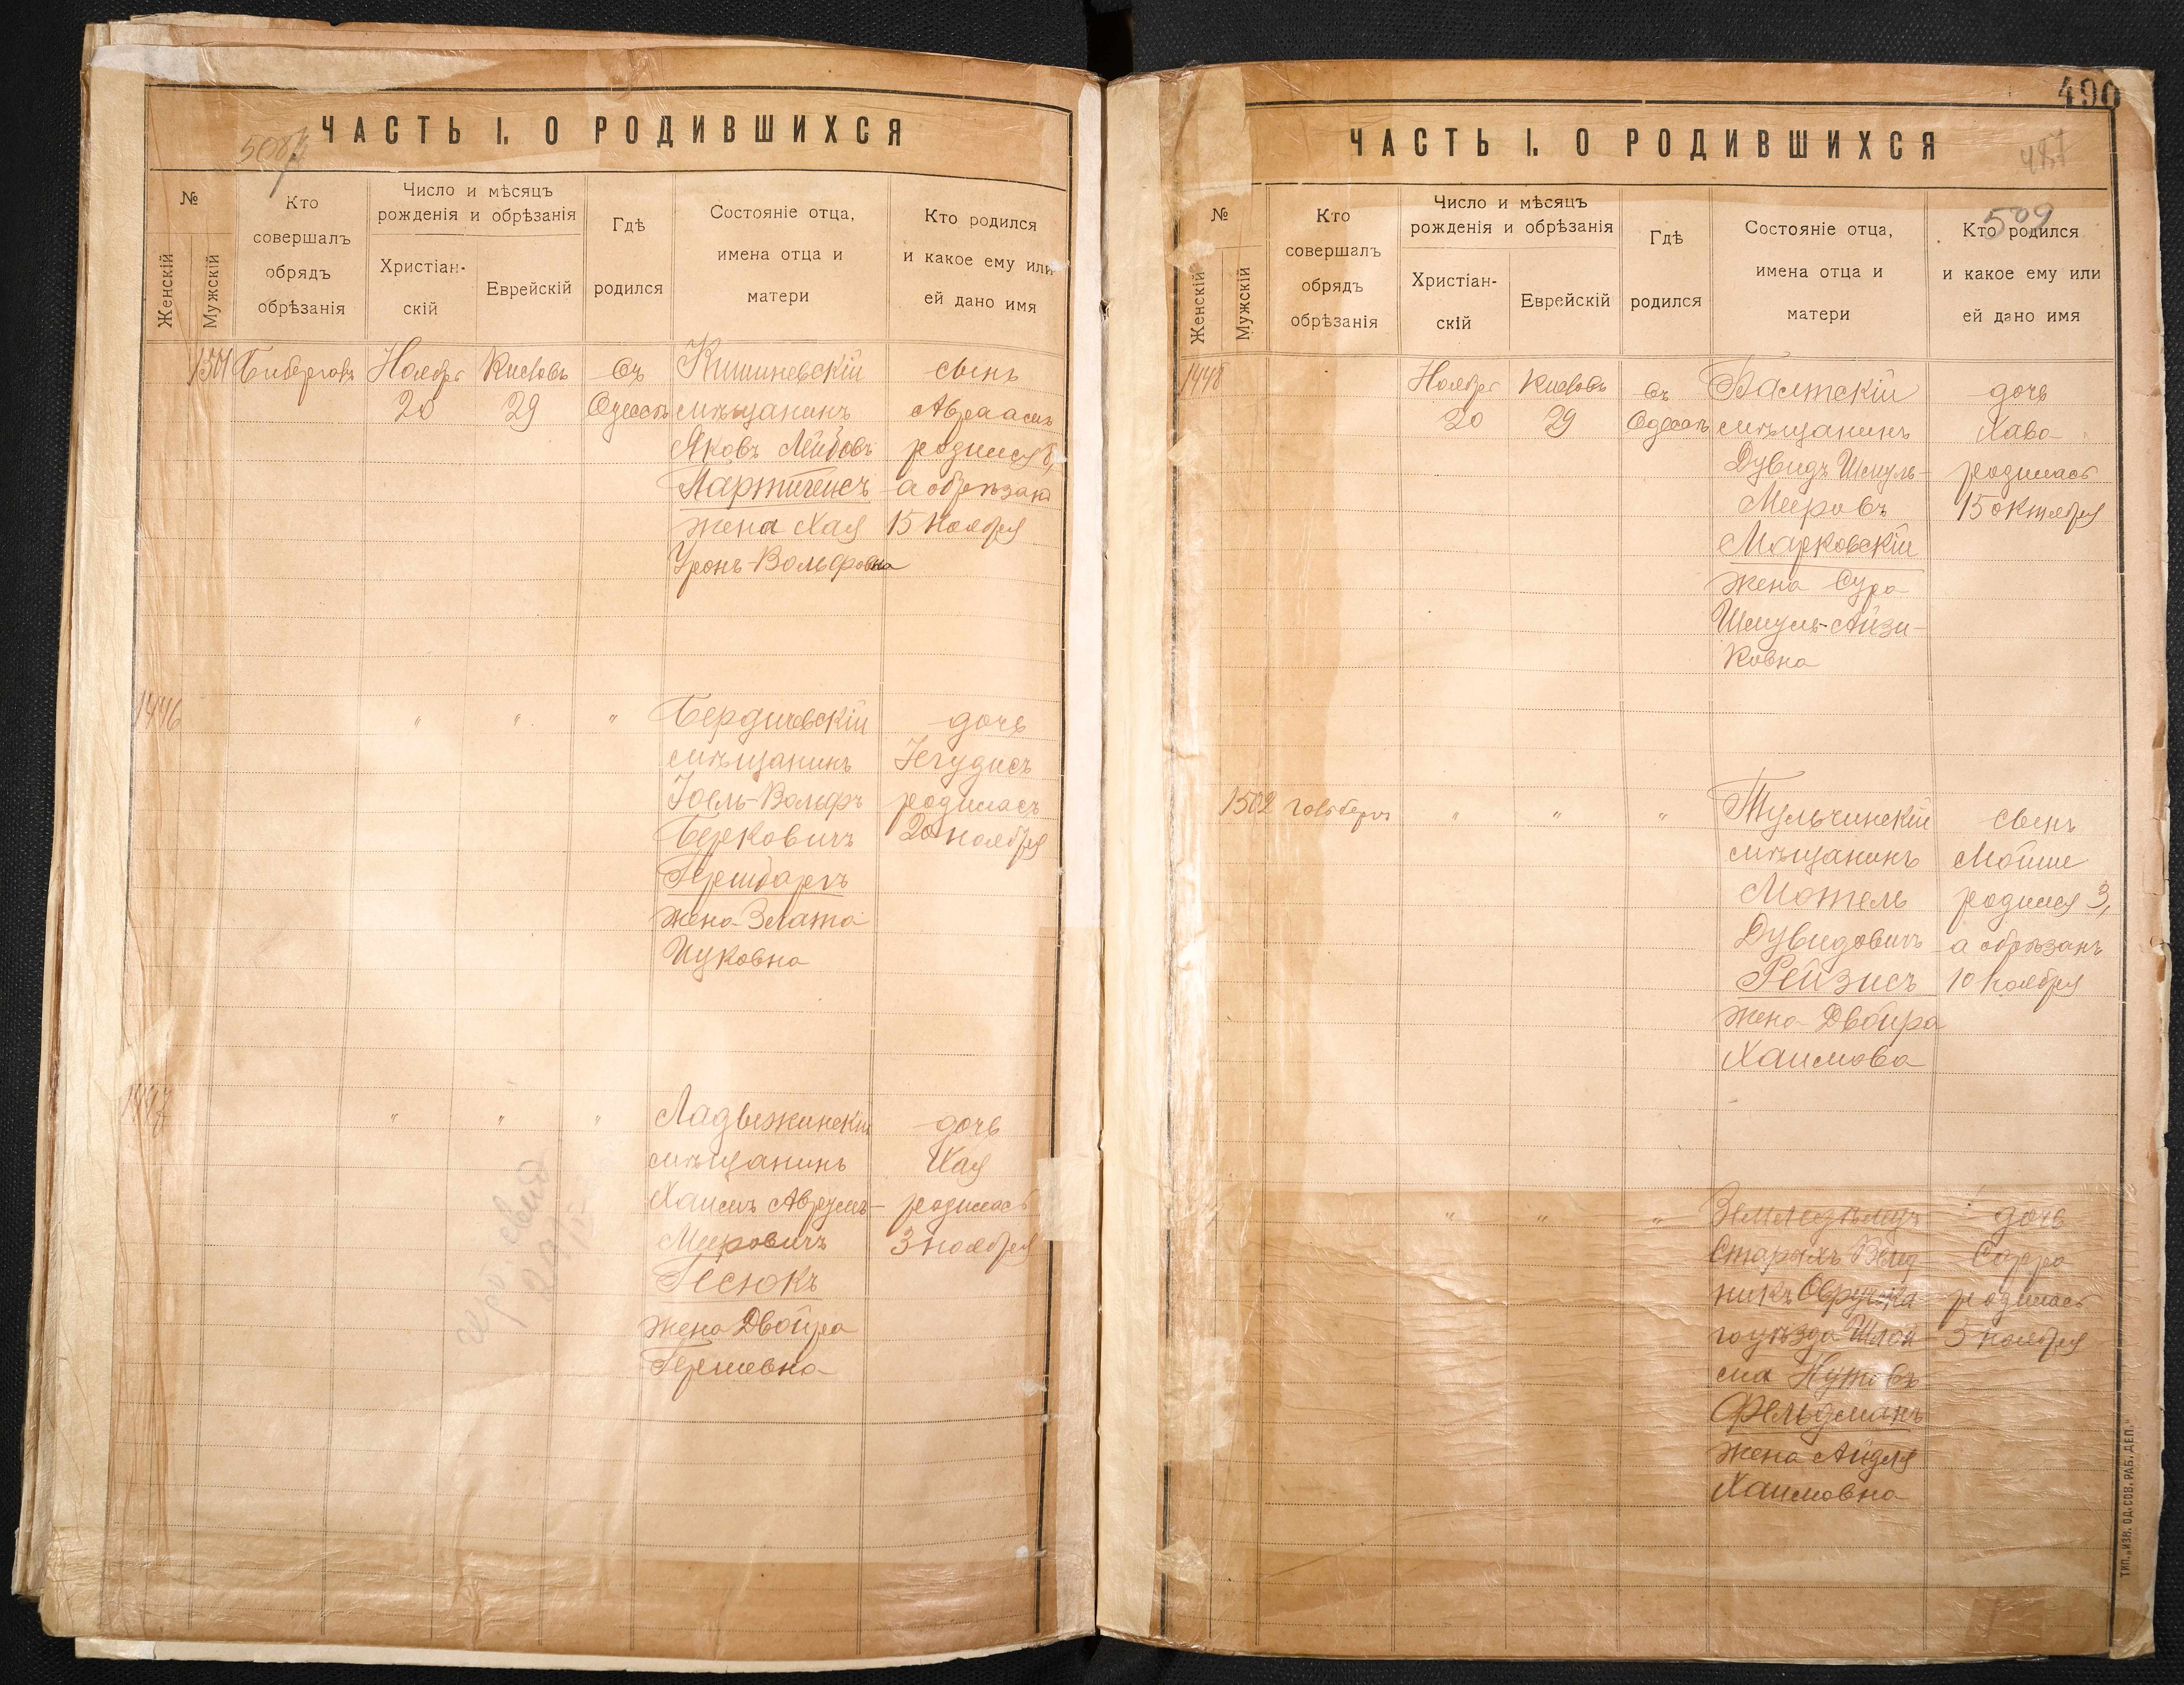 ЧАСТЬ I. О РОДИВШИХСЯ
№
Женскій
Мужскій
Кто
совершалъ
обрядъ
обрѣзанія
Число и мѣсяцъ
рожденія и обрѣзанія
Христіан-
скій
Еврейскій
Гдѣ
родился
Состояніе отца,
имена отца и
матери
Кто родился
и какое ему или
ей дано имя
Ноябрь
20
Кислевъ
29
Въ
Одессѣ
Кишиневскій
мѣщанинъ
Яковъ Лейбовъ
жена Хая
Вольфовна
сынъ
Авраамъ
родился 8,
а обрѣзанъ
15 ноября
1446
"
"
"
Бердичевскій
мѣщанинъ
Іоель-Вольфъ
Берковичъ
Гершбергъ
жена Злата
Ицковна
дочь
Іегудисъ
родилась
20 ноября
1447
"
"
"
Ладыжинскій
мѣщанинъ
Хаимъ Аврумъ-
Мееровичъ
Гесюкъ
жена Двойра
Гершевна
дочь
Хая
родилась
3 ноября
490
ЧАСТЬ I. О РОДИВШИХСЯ
509
№
Женскій
Мужскій
Кто
совершалъ
обрядъ
обрѣзанія
Число и мѣсяцъ
рожденія и обрѣзанія
Христіан-
скій
Еврейскій
Гдѣ
родился
Состояніе отца,
имена отца и
матери
Кто родился
и какое ему или
ей дано имя
1448
Ноябрь
20
Кислевъ
29
Въ
Одессѣ
Балтскій
мѣщанинъ
Дувидъ Шмуль-
Мееровъ
Марковскій
жена Сура
Шмуль-Айзи-
ковна
дочь
Хава
родилась
15 октября
1502
Гольбергъ
"
"
"
Тульчинскій
мѣщанинъ
Мотель
Дувидовичъ
Рейзисъ
жена Двойра
Хаимова
сынъ
Мойше
родился 3,
а обрѣзанъ
10 ноября
"
"
"
Земледѣлецъ
Старыхъ Велед-
никъ Овручска-
го уѣзда Шлой-
ма Нутовъ
Фельдманъ
жена Айдля
Хаимовна
дочь
Сарра
родилась
3 ноября
ТИП. „ИЗВ. ОД. СОВ. РАБ. ДЕП."